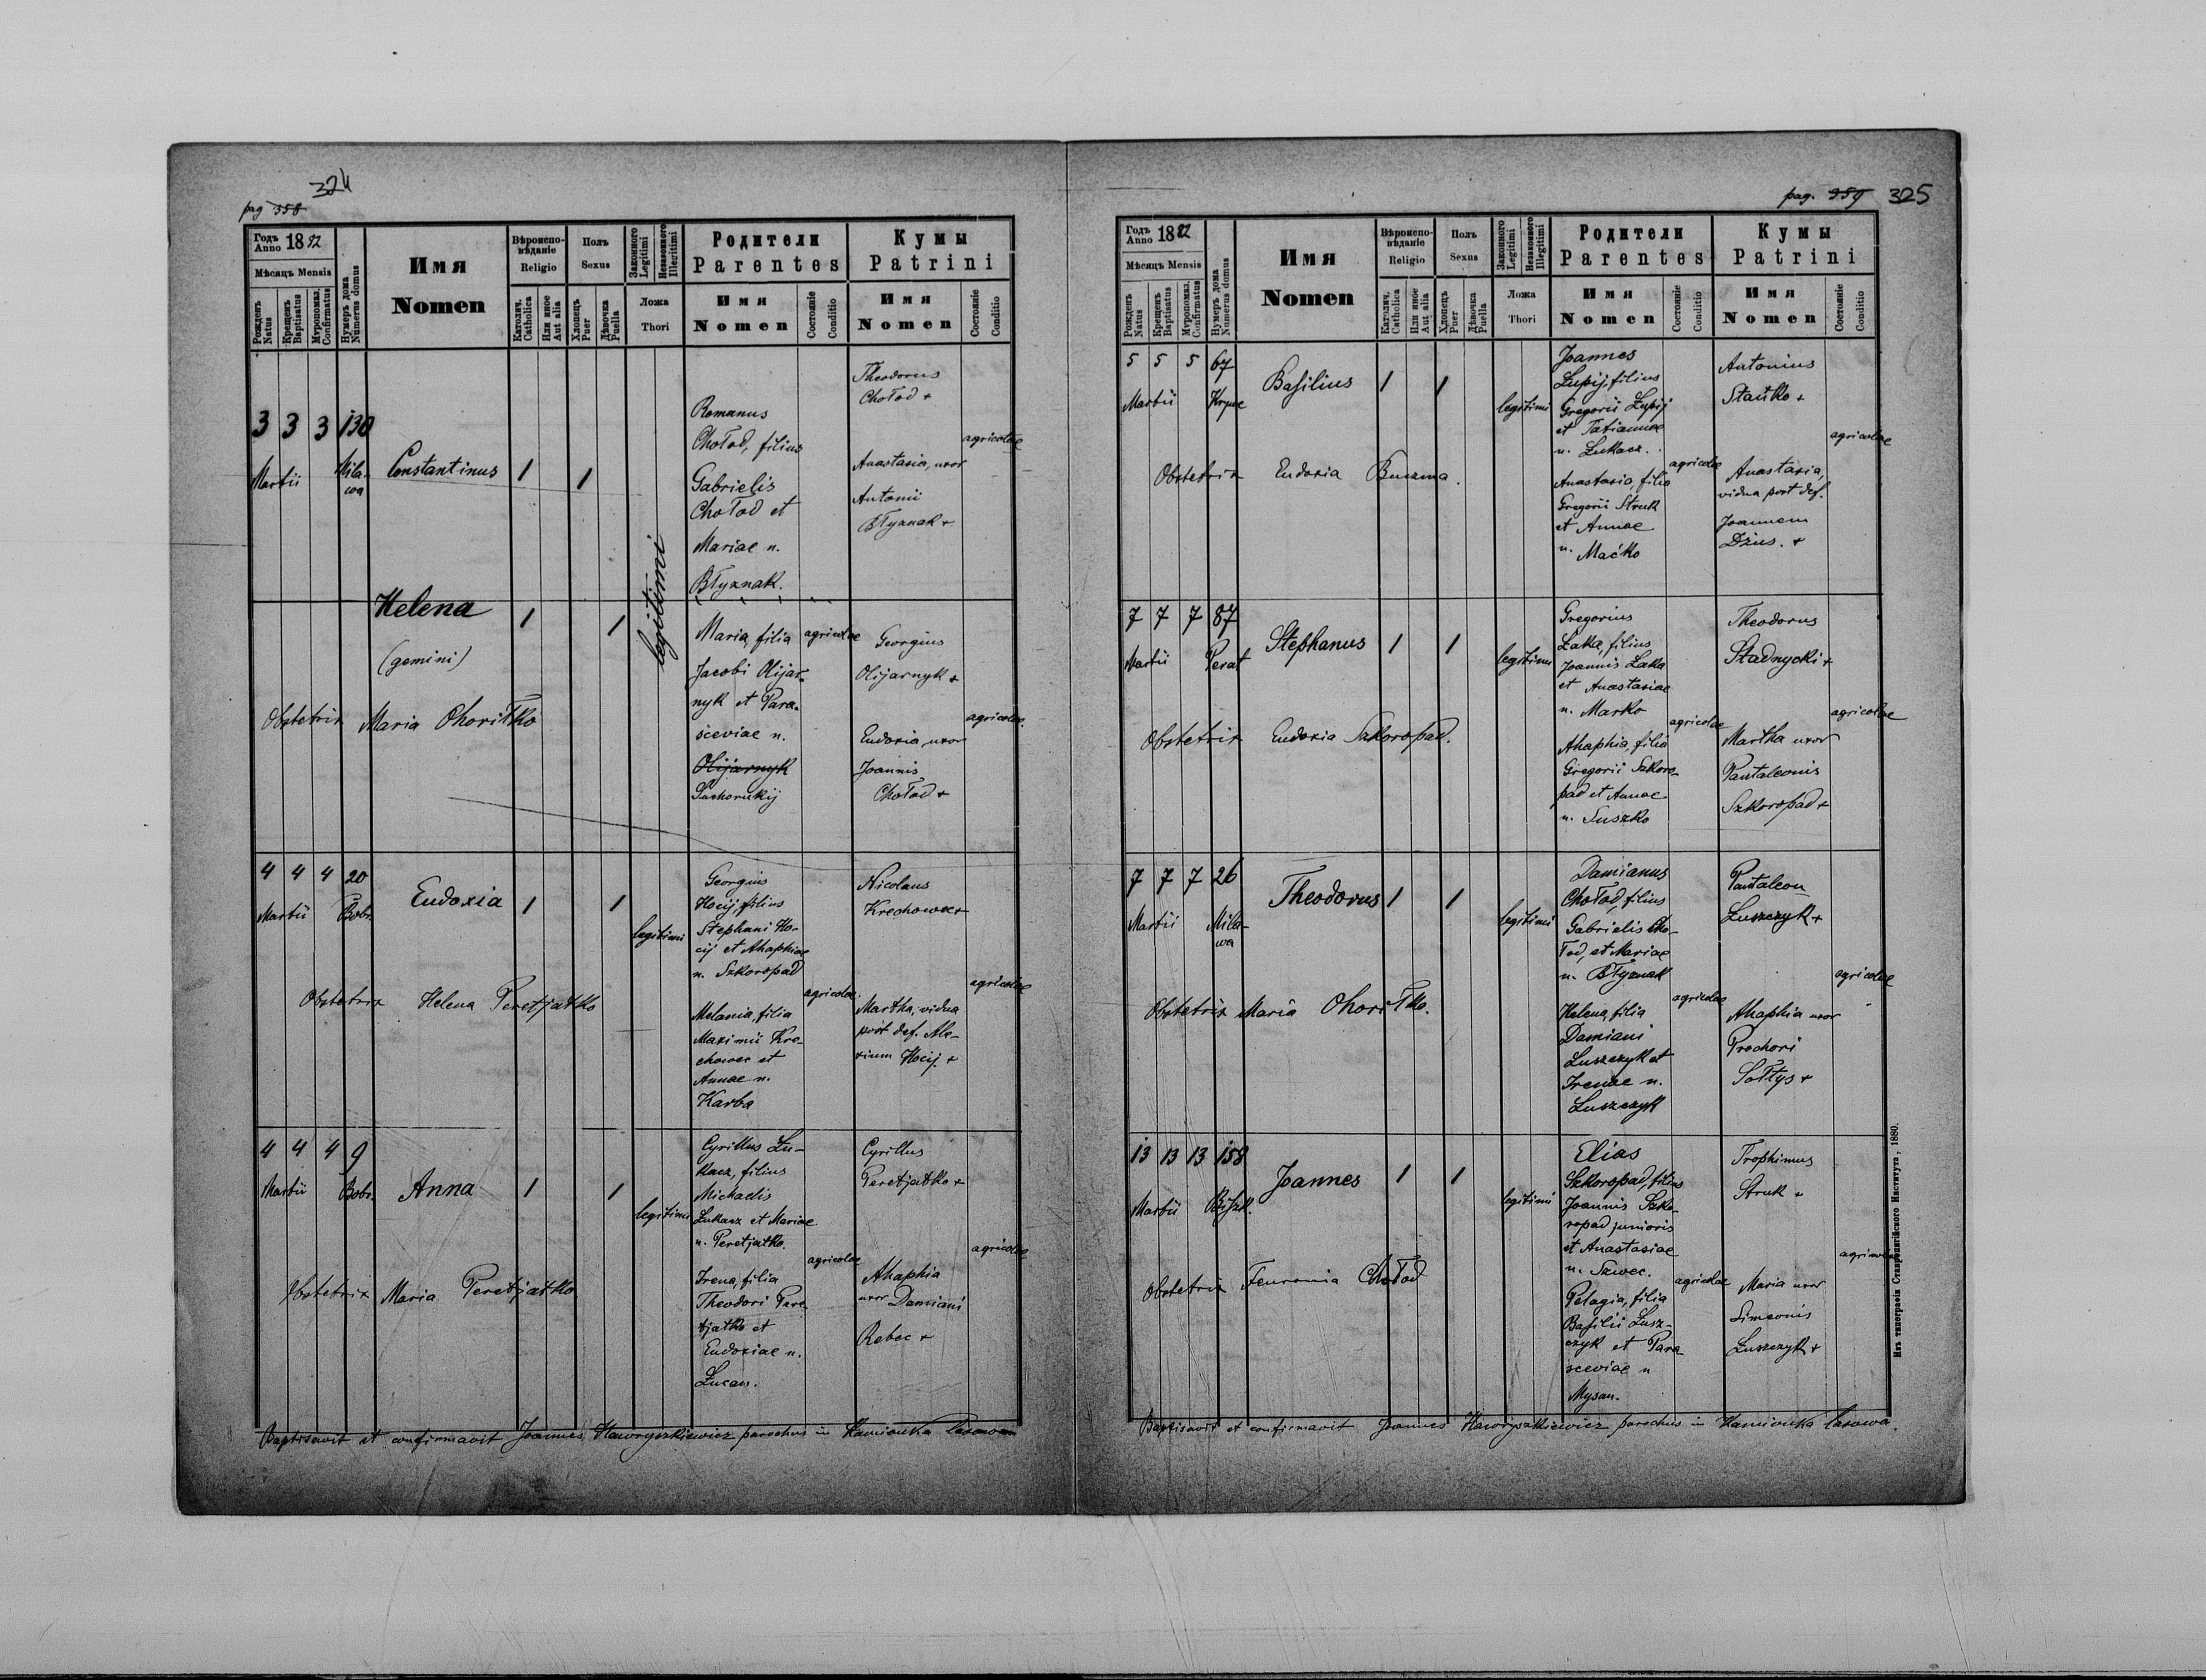 324
pag 358
Годъ Anno 1882
Мѣсяцъ Mensis
Рожденъ Natus
Крещенъ Baptisatus
Муропомаз. Confirmatus
Нумеръ дома Numerus domus
Имя
Nomen
Вѣроисповѣданіе
Religio
Католич. Catholica
Или иное Aut alia
Полъ
Sexus
Хлопецъ Puer
Дѣвочка Puella
Законного Legitimi
Незаконного Illegitimi
Ложа
Thori
Родители
Parentes
Имя
Nomen
Состояніе
Conditio
Кумы
Patrini
Имя
Nomen
Состояніе
Conditio
3 3 3 130
Martii Mila-
wa
Constantinus 1 1
Helena 1 1
(gemini)
legitimi
Obstetrix Maria Ohoritko
Romanus
Chołod, filius
Gabrielis
Chołod et
Mariae n.
Błyznak.
Maria, filia
Jacobi Olijar-
nyk et Para-
sceviae n.
Olijarnyk
Suchorukij
agricolae
Theodorus
Chołod +
Anastasia, uxor
Antonii
Błyznak +
agricolae
Georgius
Olijarnyk +
Eudoxia, uxor
Joannis
Chołod +
agricolae
4 4 4 20
Martii Bobr.
Eudoxia 1 1
legitimi
Obstetrix Helena Peretjatko
Georgius
Hocij, filius
Stephani Ho-
cij et Ahaphiae
n. Szkoropad
Melania, filia
Maximii Kre-
chowec et
Annae n.
Karba
agricolae
Nicolaus
Krechowec +
Martha, vidua
post def. Ale-
xium Hocij. +
agricolae
4 4 4 9
Martii Bobr.
Anna 1 1
legitimi
Obstetrix Maria Peretjatko
Cyrillus Łu-
kacz, filius
Michaelis
Łukacz et Mariae
n. Peretjatko.
Irena, filia
Theodori Pere-
tjatko et
Eudoxiae n.
Łucan.
agricolae
Cyrillus
Peretjatko +
Ahaphia
uxor Damiani
Rebec +
agricolae
Baptisavit et confirmavit Joannes Hawryszkiewicz parochus in Kamionka lasowa
pag. 359 325
Годъ Anno 1882
Мѣсяцъ Mensis
Рожденъ Natus
Крещенъ Baptisatus
Муропомаз. Confirmatus
Нумеръ дома Numerus domus
Имя
Nomen
Вѣроисповѣданіе
Religio
Католич. Catholica
Или иное Aut alia
Полъ
Sexus
Хлопецъ Puer
Дѣвочка Puella
Законного Legitimi
Незаконного Illegitimi
Ложа
Thori
Родители
Parentes
Имя
Nomen
Состояніе
Conditio
Кумы
Patrini
Имя
Nomen
Состояніе
Conditio
5 5 5 67
Martii
Basilius 1 1
legitimi
Obstetrix Eudoxia Buczma.
Joannes
Łupij, filius
Gregorii Łupij
et Tatiannae
n. Łukacz.
Anastasia, filia
Gregorii Struk
et Annae
n. Maćko
agricolae
Antonius
Stańko +
Anastasia,
vidua post def.
Joannem
Dzius. +
agricolae
7 7 7 87
Martii Perat
Stephanus 1 1
legitimi
Obstetrix Eudoxia Szkoropad.
Gregorius
Łaka, filius
Joannis Łaka
et Anastasiae
n. Marko
Ahaphia, filia
Gregorii Szkoro-
pad et Annae
n. Suszko
agricolae
Theodorus
Stadnycki +
Martha uxor
Pantaleonis
Szkoropad +
agricolae
7 7 7 26
Martii Mila-
wa
Theodorus 1 1
legitimi
Obstetrix Maria Ohoritko.
Damianus
Chołod, filius
Gabrielis Cho-
łod, et Mariae
n. Błyznak
Helena, filia
Damiani
Łuszczyk et
Irenae n.
Łuszczyk
agricolae
Pantaleon
Łuszczyk +
Ahaphia uxor
Prochori
Sołtys +
agricolae
13 13 13 158
Martii Biszk.
Joannes 1 1
legitimi
Obstetrix Feuronia Chołod
Elias
Szkoropad, filius
Joannis Szko-
ropad junioris
et Anastasiae
n. Szwec.
Pelagia, filia
Basilii Łusz-
czyk et Para
sceviae n
Mysan.
agricolae
Trophimus
Struk +
Maria uxor
Simeonis
Łuszczyk +
agricolae
Baptisavit et confirmavit Joannes Hawryszkiewicz parochus in Kamionka lasowa.
Изъ типографіи Ставропигійского Института, 1880.